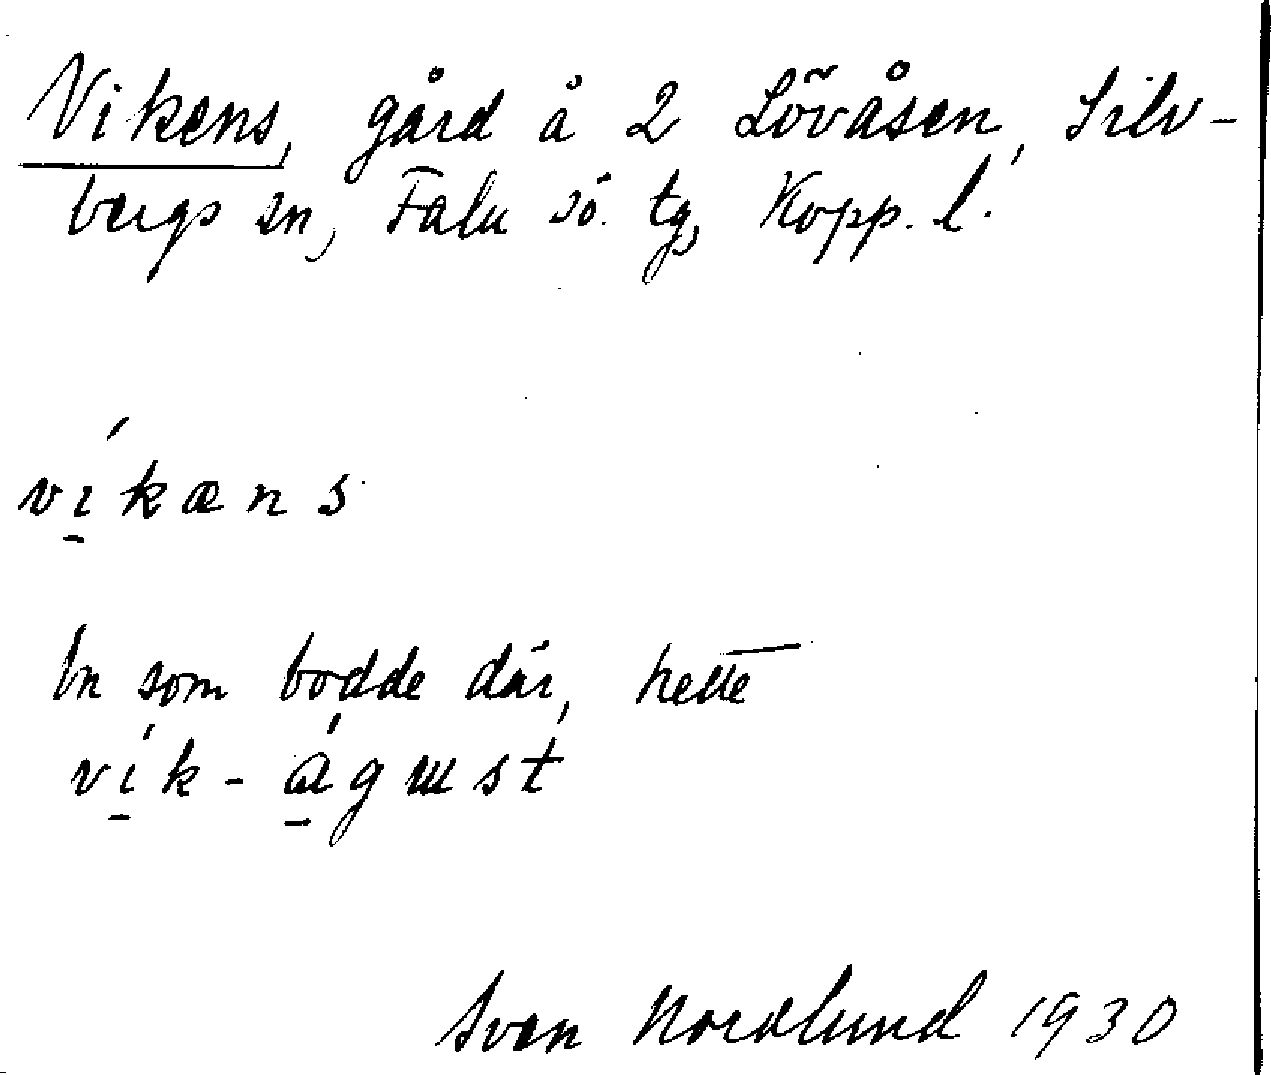 Vikens, gård å 2 Lövåsen, Silv-
bergs sn, Falu sö. tg, Kopp. l.
víkæns
En som bodde där, hette
vík-águst
Sven Nordlund 1930